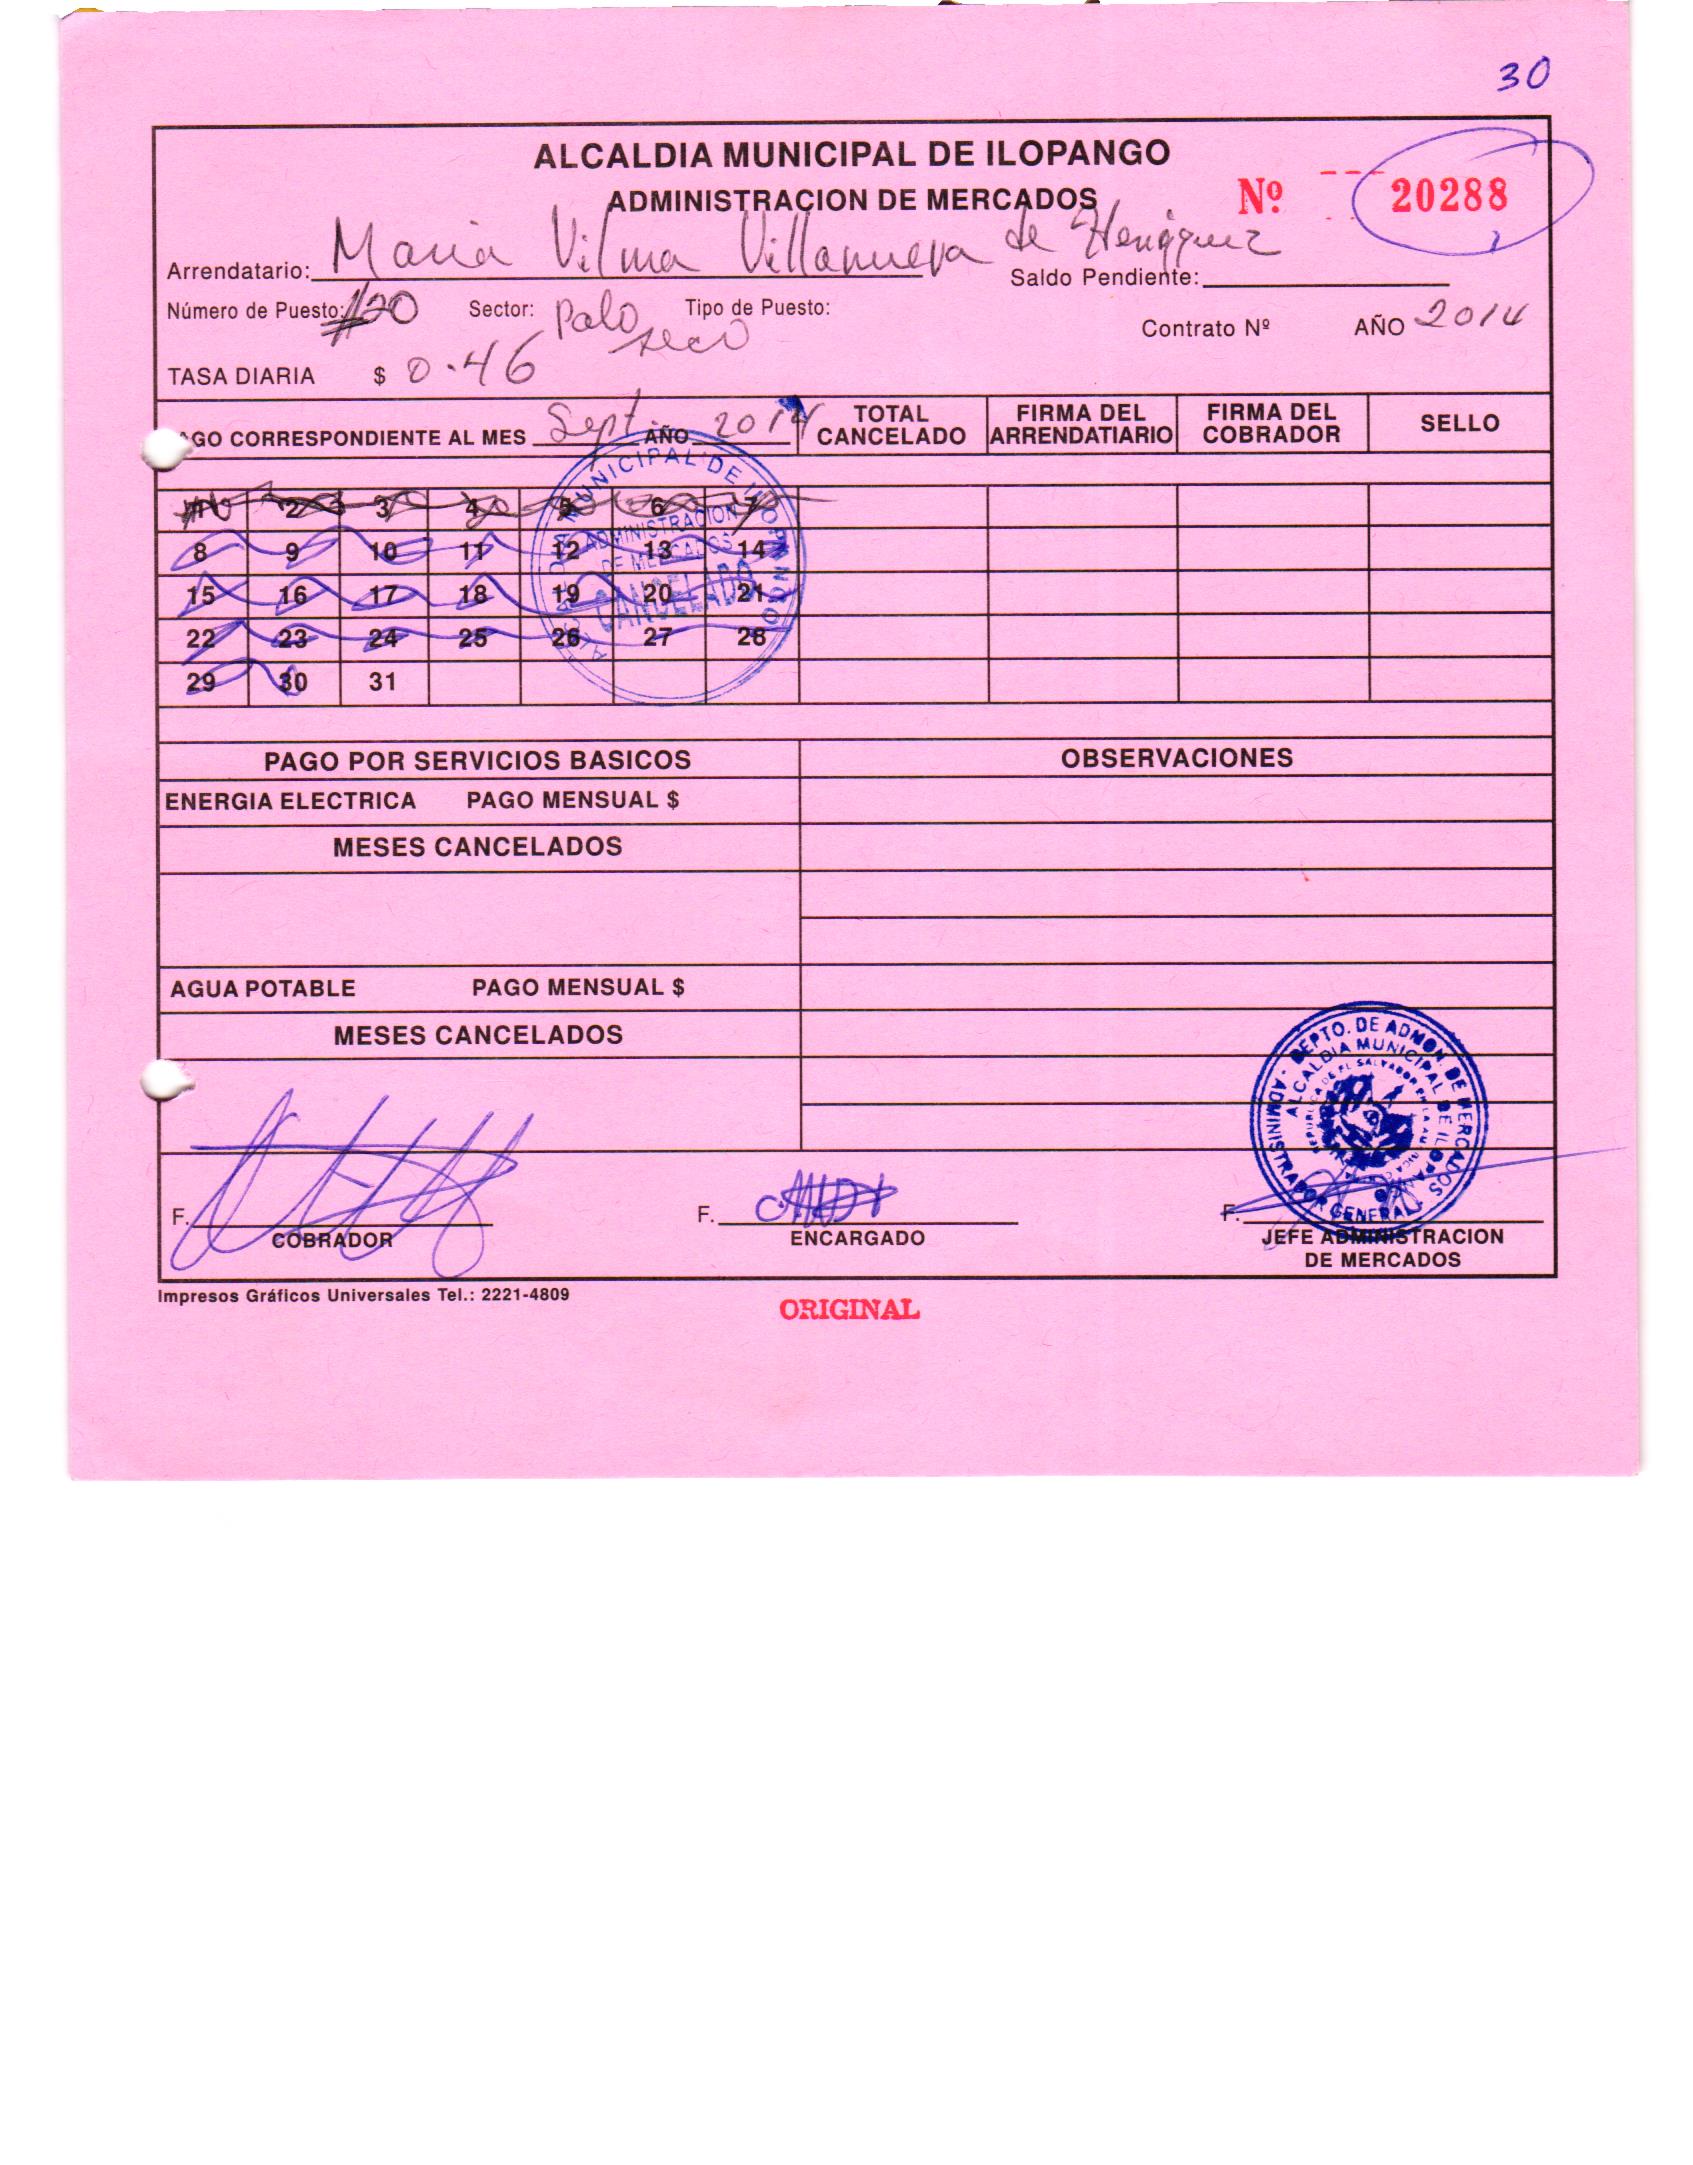 30
ALCALDIA MUNICIPAL DE ILOPANGO
ADMINISTRACION DE MERCADOS
Nº 20288
Arrendatario: Maria Vilma Villanueva de Henríquez
Saldo Pendiente:
Número de Puesto: #20 Sector: Palo seco Tipo de Puesto:
Contrato Nº AÑO 2014
TASA DIARIA $ 0.46
AGO CORRESPONDIENTE AL MES Sept. AÑO 2014 TOTAL CANCELADO FIRMA DEL ARRENDATIARIO FIRMA DEL COBRADOR SELLO
1 2 3 4 5 6 7
8 9 10 11 12 13 14
15 16 17 18 19 20 21
22 23 24 25 26 27 28
29 30 31
ALCALDIA MUNICIPAL DE ILOPANGO
ADMINISTRACION
DE MERCADOS
CANCELADO
PAGO POR SERVICIOS BASICOS OBSERVACIONES
ENERGIA ELECTRICA PAGO MENSUAL $
MESES CANCELADOS
AGUA POTABLE PAGO MENSUAL $
MESES CANCELADOS
DEPTO. DE ADMON DE MERCADOS
ALCALDIA MUNICIPAL DE ILOPANGO
REPUBLICA DE EL SALVADOR EN LA AMERICA CENTRAL
ADMINISTRADOR GENERAL
F. F. F.
COBRADOR ENCARGADO JEFE ADMINISTRACION
DE MERCADOS
Impresos Gráficos Universales Tel.: 2221-4809
ORIGINAL